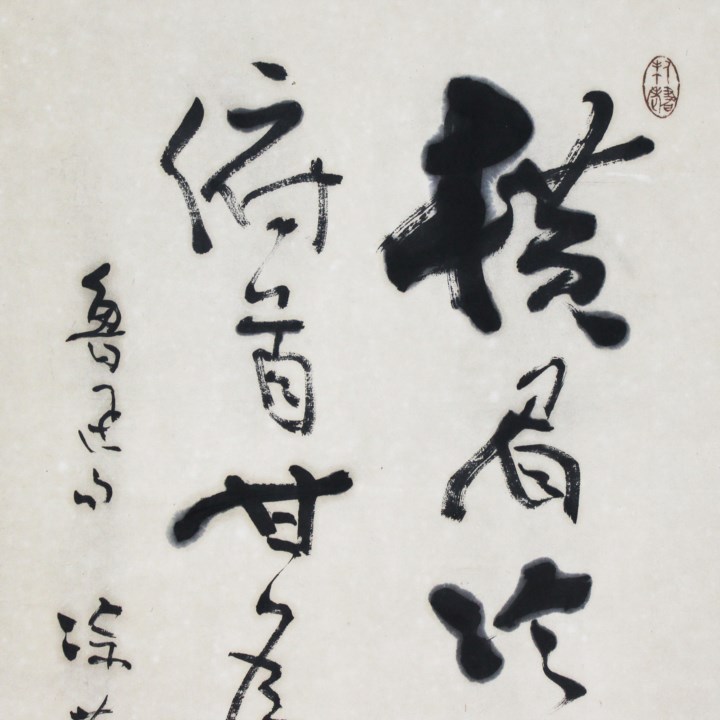 横眉冷
俯首甘為
魯迅句